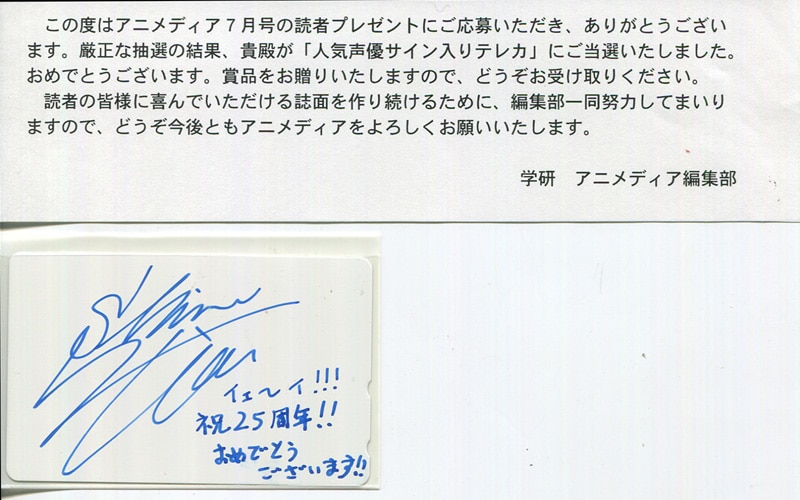 この度はアニメディア７月号の読者プレゼントにご応募いただき、ありがとうござい
ます。厳正な抽選の結果、貴殿が「人気声優サイン入りテレカ」にご当選いたしました。
おめでとうございます。賞品をお贈りいたしますので、どうぞお受け取りください。
読者の皆様に喜んでいただける誌面を作り続けるために、編集部一同努力してまいり
ますので、どうぞ今後ともアニメディアをよろしくお願いいたします。
学研　アニメディア編集部
イェ～イ!!!
祝25周年!!
おめでとう
ございます!!